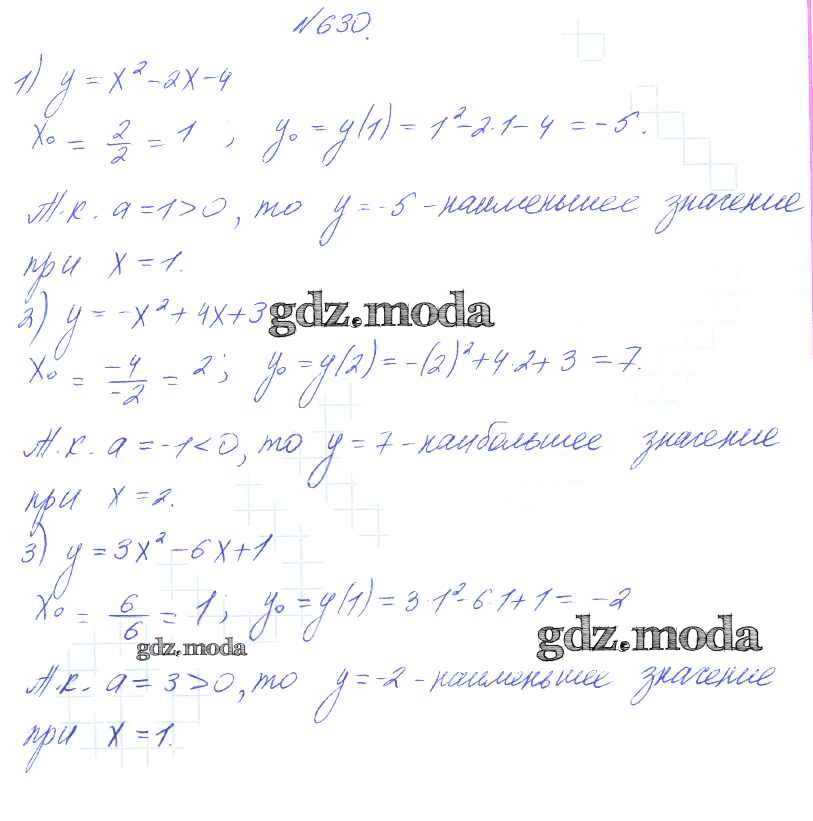 №630.
1) y = x² - 2x - 4
x₀ = 2/2 = 1 ; y₀ = y(1) = 1² - 2·1 - 4 = -5.
Т.к. a = 1 > 0, то y = -5 - наименьшее значение
при x = 1.
2) y = -x² + 4x + 3
gdz.moda
x₀ = -4/-2 = 2 ; y₀ = y(2) = -(2)² + 4·2 + 3 = 7.
Т.к. a = -1 < 0, то y = 7 - наибольшее значение
при x = 2.
3) y = 3x² - 6x + 1
x₀ = 6/6 = 1 ; y₀ = y(1) = 3·1² - 6·1 + 1 = -2
gdz.moda
gdz.moda
Т.к. a = 3 > 0, то y = -2 - наименьшее значение
при x = 1.